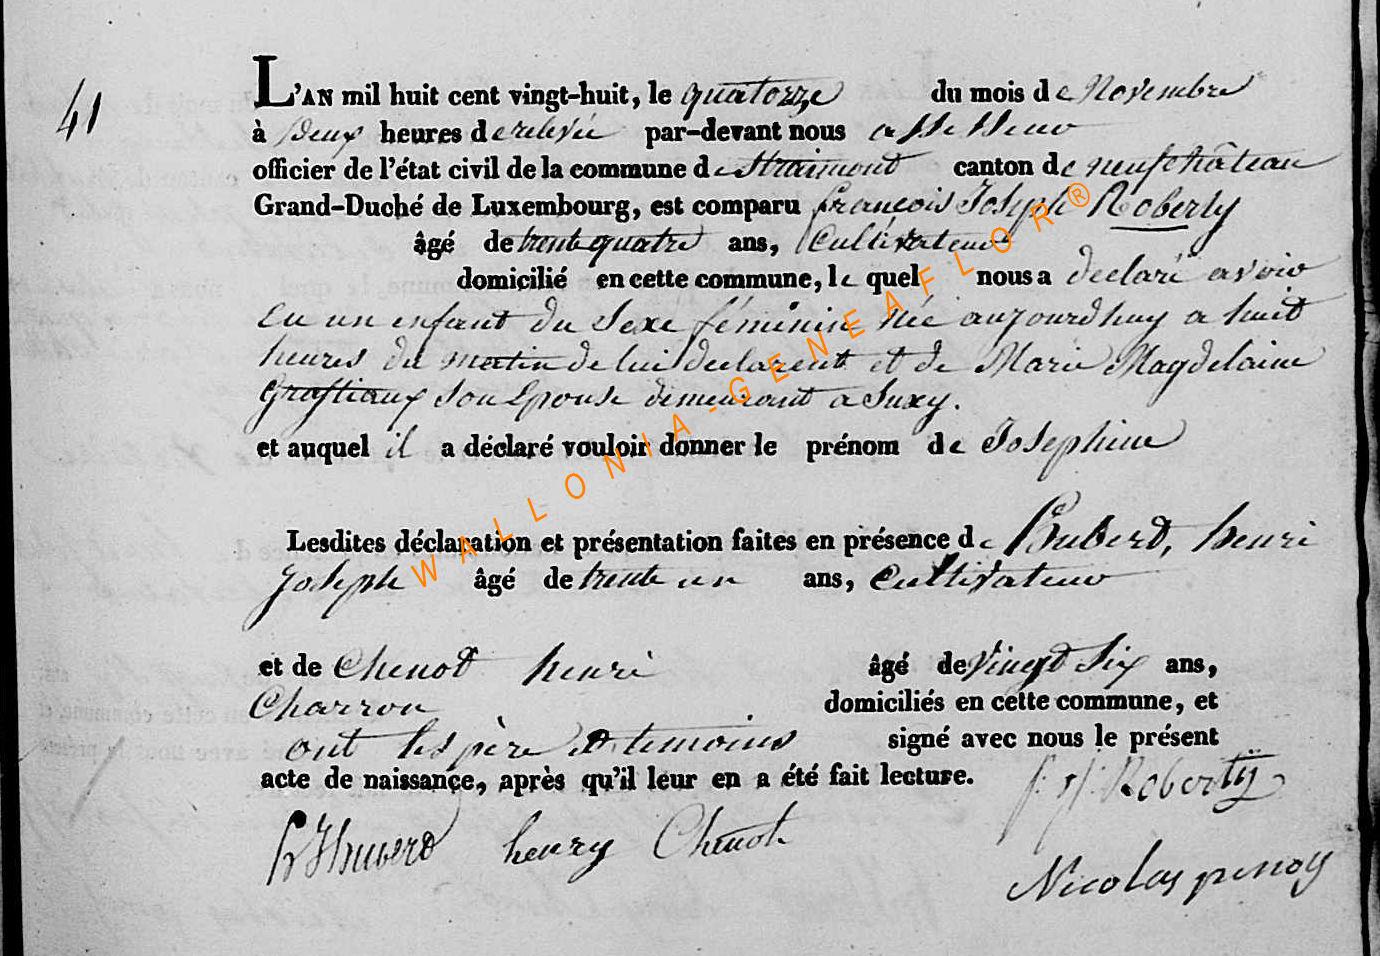 41
L'AN mil huit cent vingt-huit, le quatorze du mois de Novembre
à deux heures de relevée par-devant nous assesseur
officier de l'état civil de la commune de Straimont canton de neufchâteau
Grand-Duché de Luxembourg, est comparu françois Joseph Roberty
âgé de trente quatre ans, Cultivateur
domicilié en cette commune, le quel nous a declaré avoir
Eu un enfant du Sexe féminin née aujourdhuy a huit
heures du matin de lui declarent et de Marie Magdelaine
son Epouse demeurant a Suxy.
et auquel il a déclaré vouloir donner le prénom de Josephine
Lesdites déclaration et présentation faites en présence de Hubert, henri
Joseph âgé de trente un ans, Cultivateur
et de Chenot henri âgé de Vingt Six ans,
Charron domiciliés en cette commune, et
ont les père et temoins signé avec nous le présent
acte de naissance, après qu'il leur en a été fait lecture.
f. j. Roberty
h J hubert henry Chenot
Nicolas pinoy
WALLONIA-GENEAFLOR®